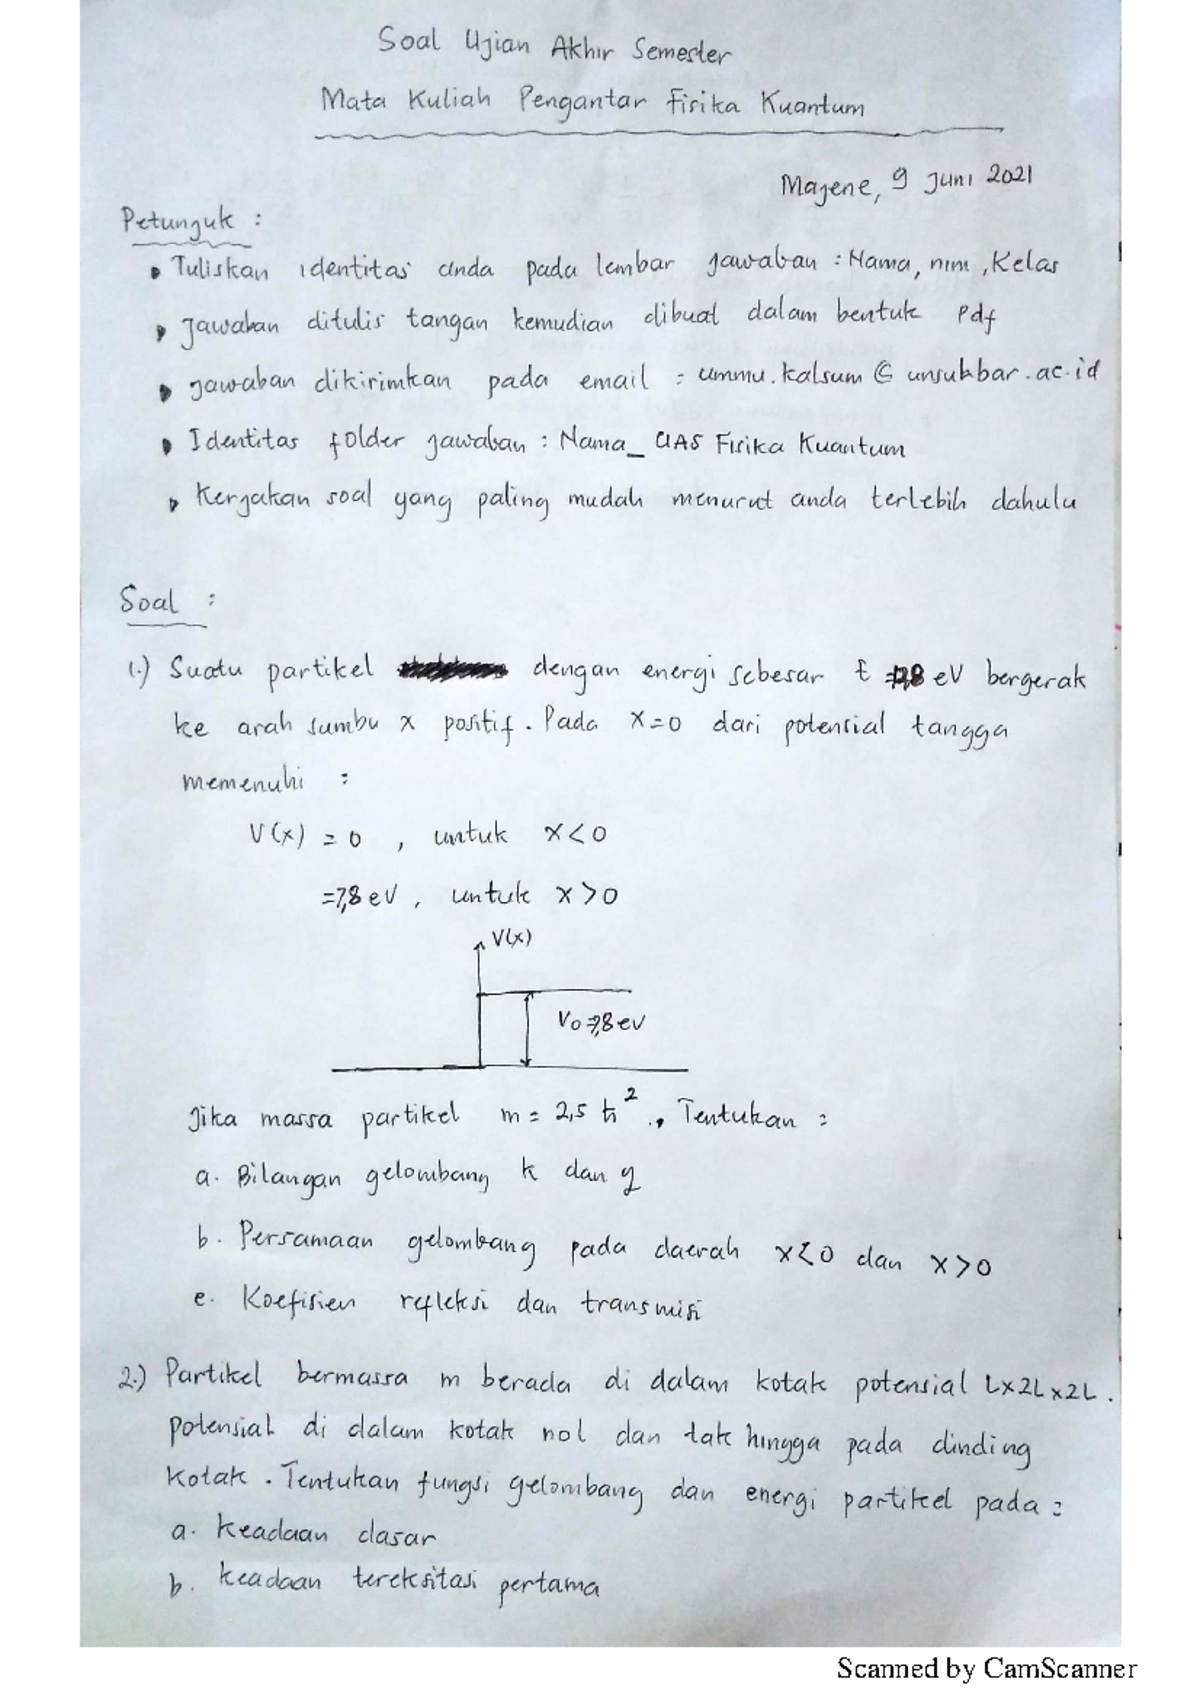 Soal Ujian Akhir Semester
Mata Kuliah Pengantar Fisika Kuantum
Majene, 9 Juni 2021
Petunjuk :
• Tuliskan identitas anda pada lembar jawaban : Nama, nim, Kelas
• Jawaban ditulis tangan kemudian dibuat dalam bentuk Pdf
• jawaban dikirimkan pada email : ummu.kalsum@unsulbar.ac.id
• Identitas folder jawaban : Nama_UAS Fisika Kuantum
• Kerjakan soal yang paling mudah menurut anda terlebih dahulu
Soal :
1.) Suatu partikel dengan energi sebesar E = eV bergerak
ke arah sumbu x positif. Pada x=0 dari potensial tangga
memenuhi :
V(x) = 0 , untuk x<0
=7,8 eV , untuk x>0
V(x)
V0=7,8 eV
Jika massa partikel m = 2,5 ħ², Tentukan :
a. Bilangan gelombang k dan q
b. Persamaan gelombang pada daerah x<0 dan x>0
c. Koefisien refleksi dan transmisi
2.) Partikel bermassa m berada di dalam kotak potensial L×2L×2L.
potensial di dalam kotak nol dan tak hingga pada dinding
kotak. Tentukan fungsi gelombang dan energi partikel pada :
a. keadaan dasar
b. keadaan tereksitasi pertama
Scanned by CamScanner